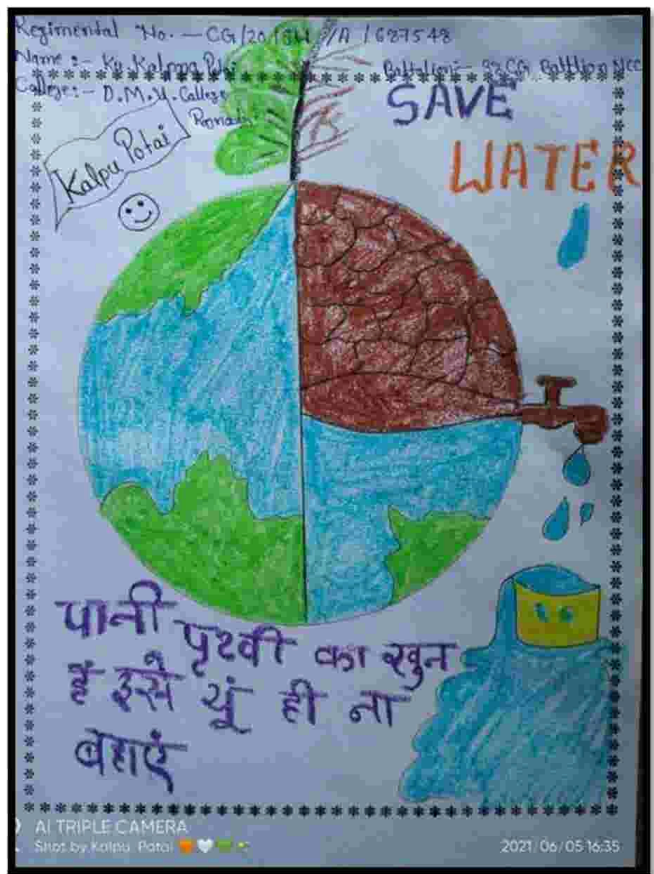 Regimental No. — CG/20/SW/A/687548
Name :- Ku. Kalpna Potai
Battalion:- CG Battlion NCC
College:- D.M.Y. College
Kalpu Potai
SAVE
WATER
पानी पृथ्वी का खुन
हैं इसे यूं ही ना
बहाएं
AI TRIPLE CAMERA
Shot by Kalpu Potai
2021/06/05 16:35